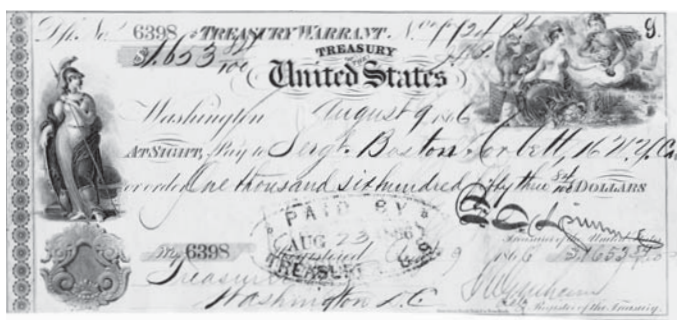 Dft. No. 6398 TREASURY WARRANT. No.
9.
$1,653 84/100
TREASURY
OF THE
United States
Washington August 9, 1866
AT SIGHT, Pay to Sergt. Boston Corbett, 16 N.Y. Ca
or order One thousand six hundred fifty three 84/100 DOLLARS
PAID BY
AUG 23 1866
TREASURER U.S.
No. 6398
Registered 9 1866 $1653
Treasurer of the United States
Treasurer
Washington D.C.
Register of the Treasury.